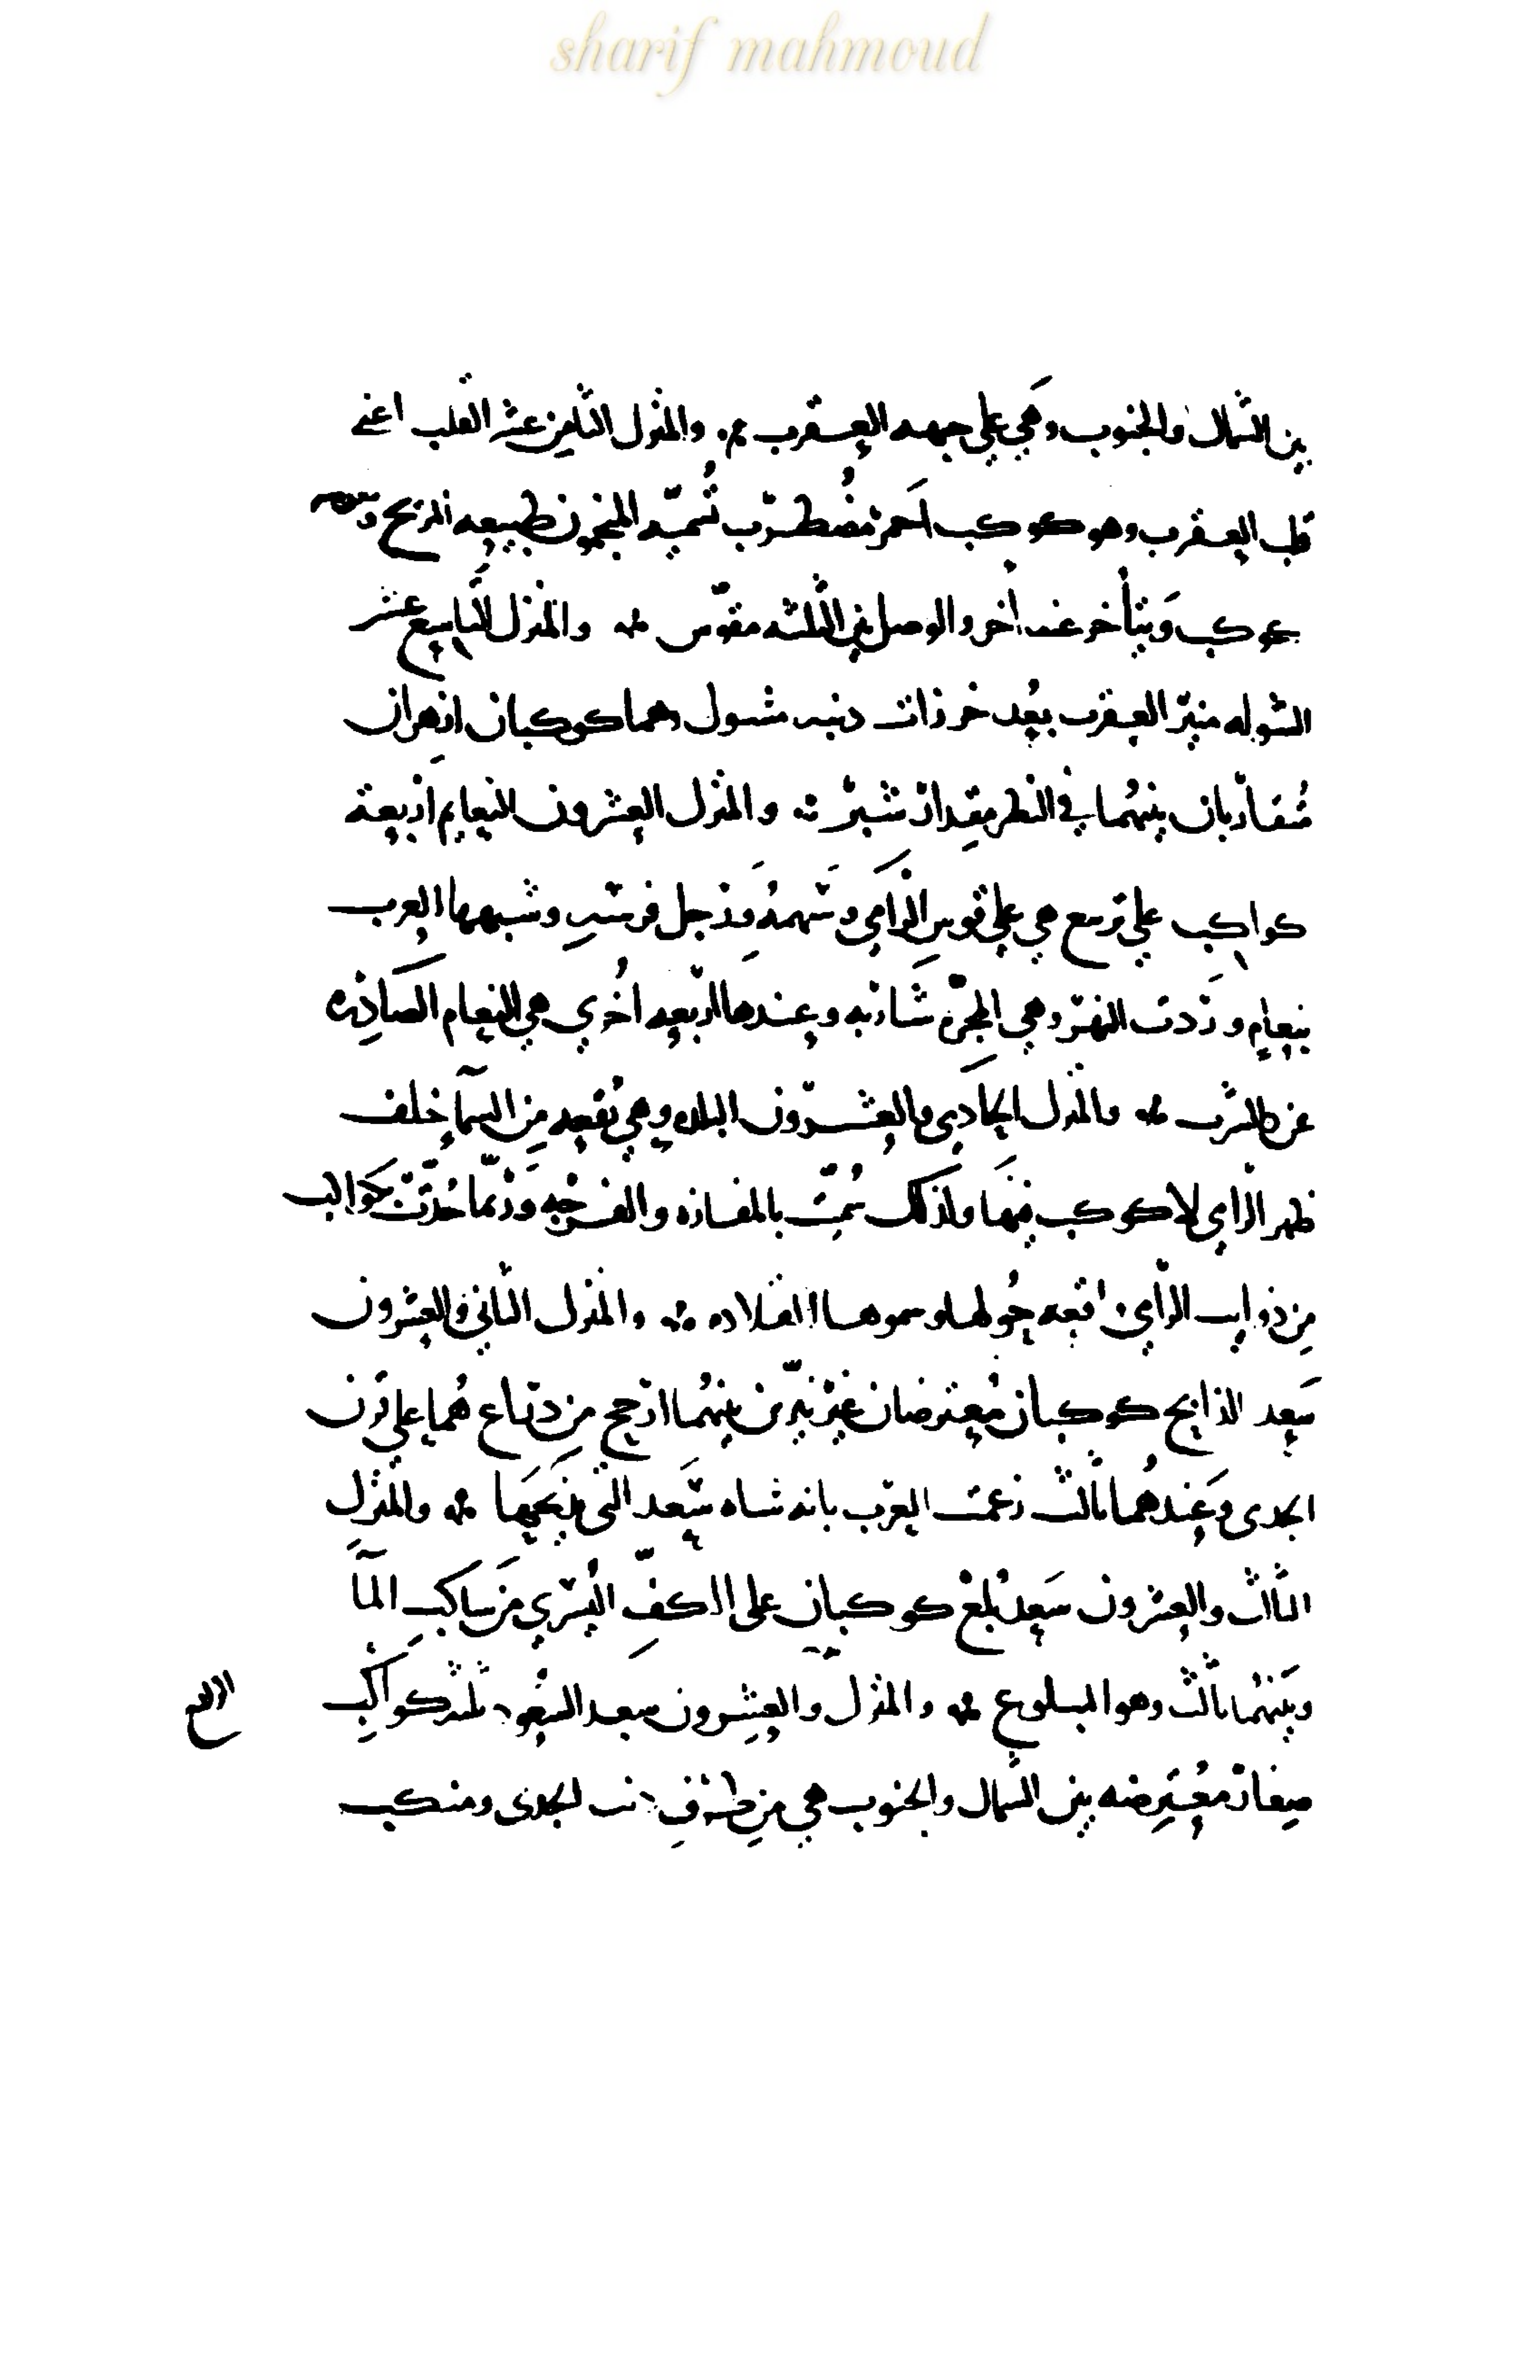 sharif mahmoud
بين الشمال والجنوب وهي على جبهه العقرب والمنزل الثامن عشر القلب اعني
قلب العقرب وهو كوكب احمر مضطرب تسميه المنجمون طبيعه المريخ
كوكب ويتأخر عنه أخر والوصل بين الثلثه مقوّس والمنزل التاسع عشر
الشوله من العقرب بعد خرزات ذنبه مشول وهما كوكبان ازهران
متقاربان بينهما في النظر مقدار شبر والمنزل العشرون النعايم اربعة
كواكب على تربيع هي على قوس الرامي وسهمه ورجل فرسه وشبهها العرب
بنعام وردت النهر وهي المجرّه شاربه وعندها اربعه اخري هي النعام الصادره
عن الشرب والمنزل الحادي والعشرون البلده وهي بقعه من السمآ خلف
ظهر الرامي لا كوكب فيها ولذلك سُمّيت بالمفازه والفرجه وربّما حُدّت بكواكب
من ذوايب الرامي واقعه حولها وسموها القلاده والمنزل الثاني والعشرون
سعد الذابح كوكبان معترضان غير نيّرين بينهما ارجح من ذراع هما على قرن
الجدى وعندهما ثالث زعمت العرب بانه شاه سعد التي يذبحها والمنزل
الثالث والعشرون سعد بلع كوكبان على الكفّ اليسري من ساكب المآ
وبينهما ثالث وهو المبلوع والمنزل والعشرون سعد السعود ثلثه كواكب
الرابع
صغار معترضه بين الشمال والجنوب هي من طرف ذنب الجدى ومنكب